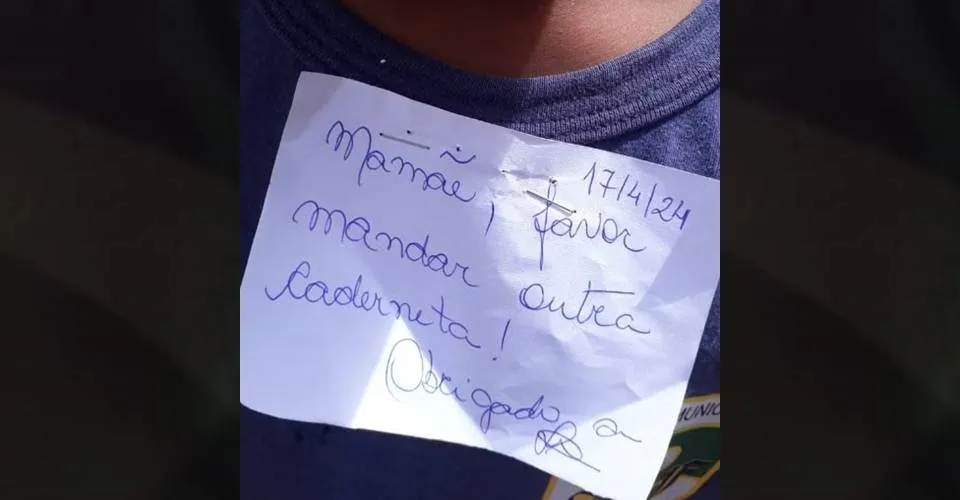 17/4/24
Mamãe, favor
mandar outra
Caderneta!
Obrigado a
MUNIC